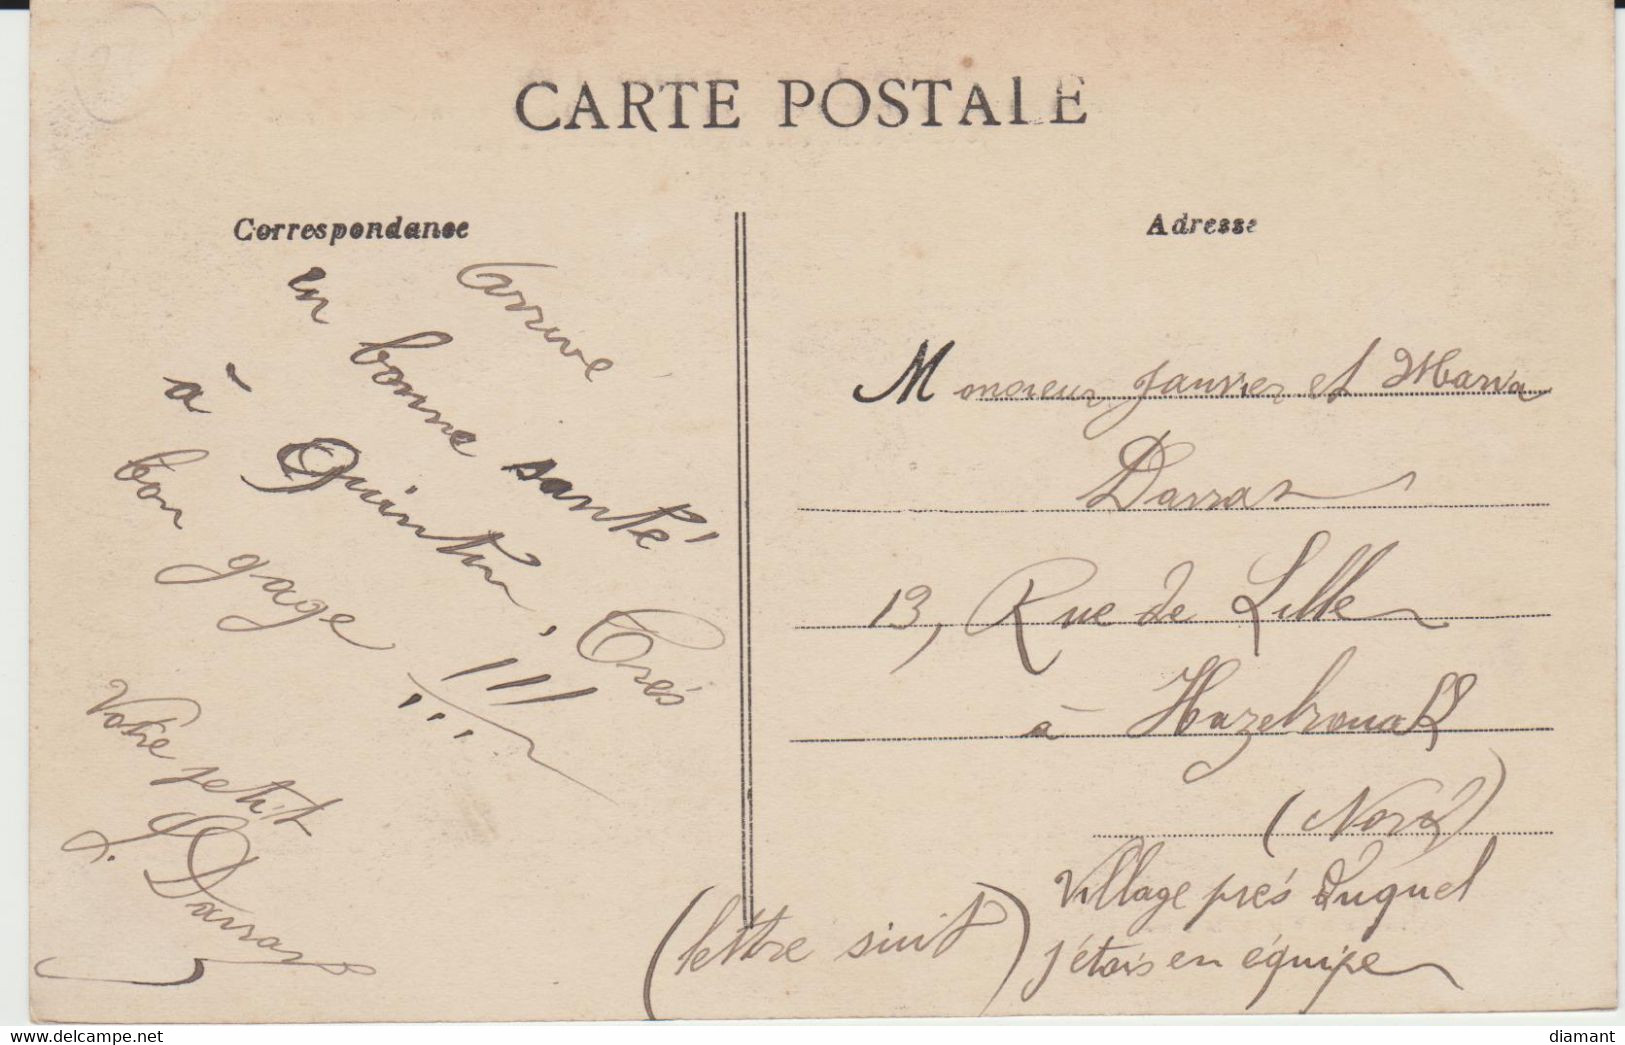 CARTE POSTALE
Correspondance
Arrivé
en bonne santé
à Quintin, Très
bon gage !!!
Votre petit
J. Darras
Adresse
Monsieur Janvier et Maria
Darras
13, Rue de Lille
à Hazebrouck
(Nord)
Village près duquel
j'étais en équipe
(lettre suit)
www.delcampe.net
diamant